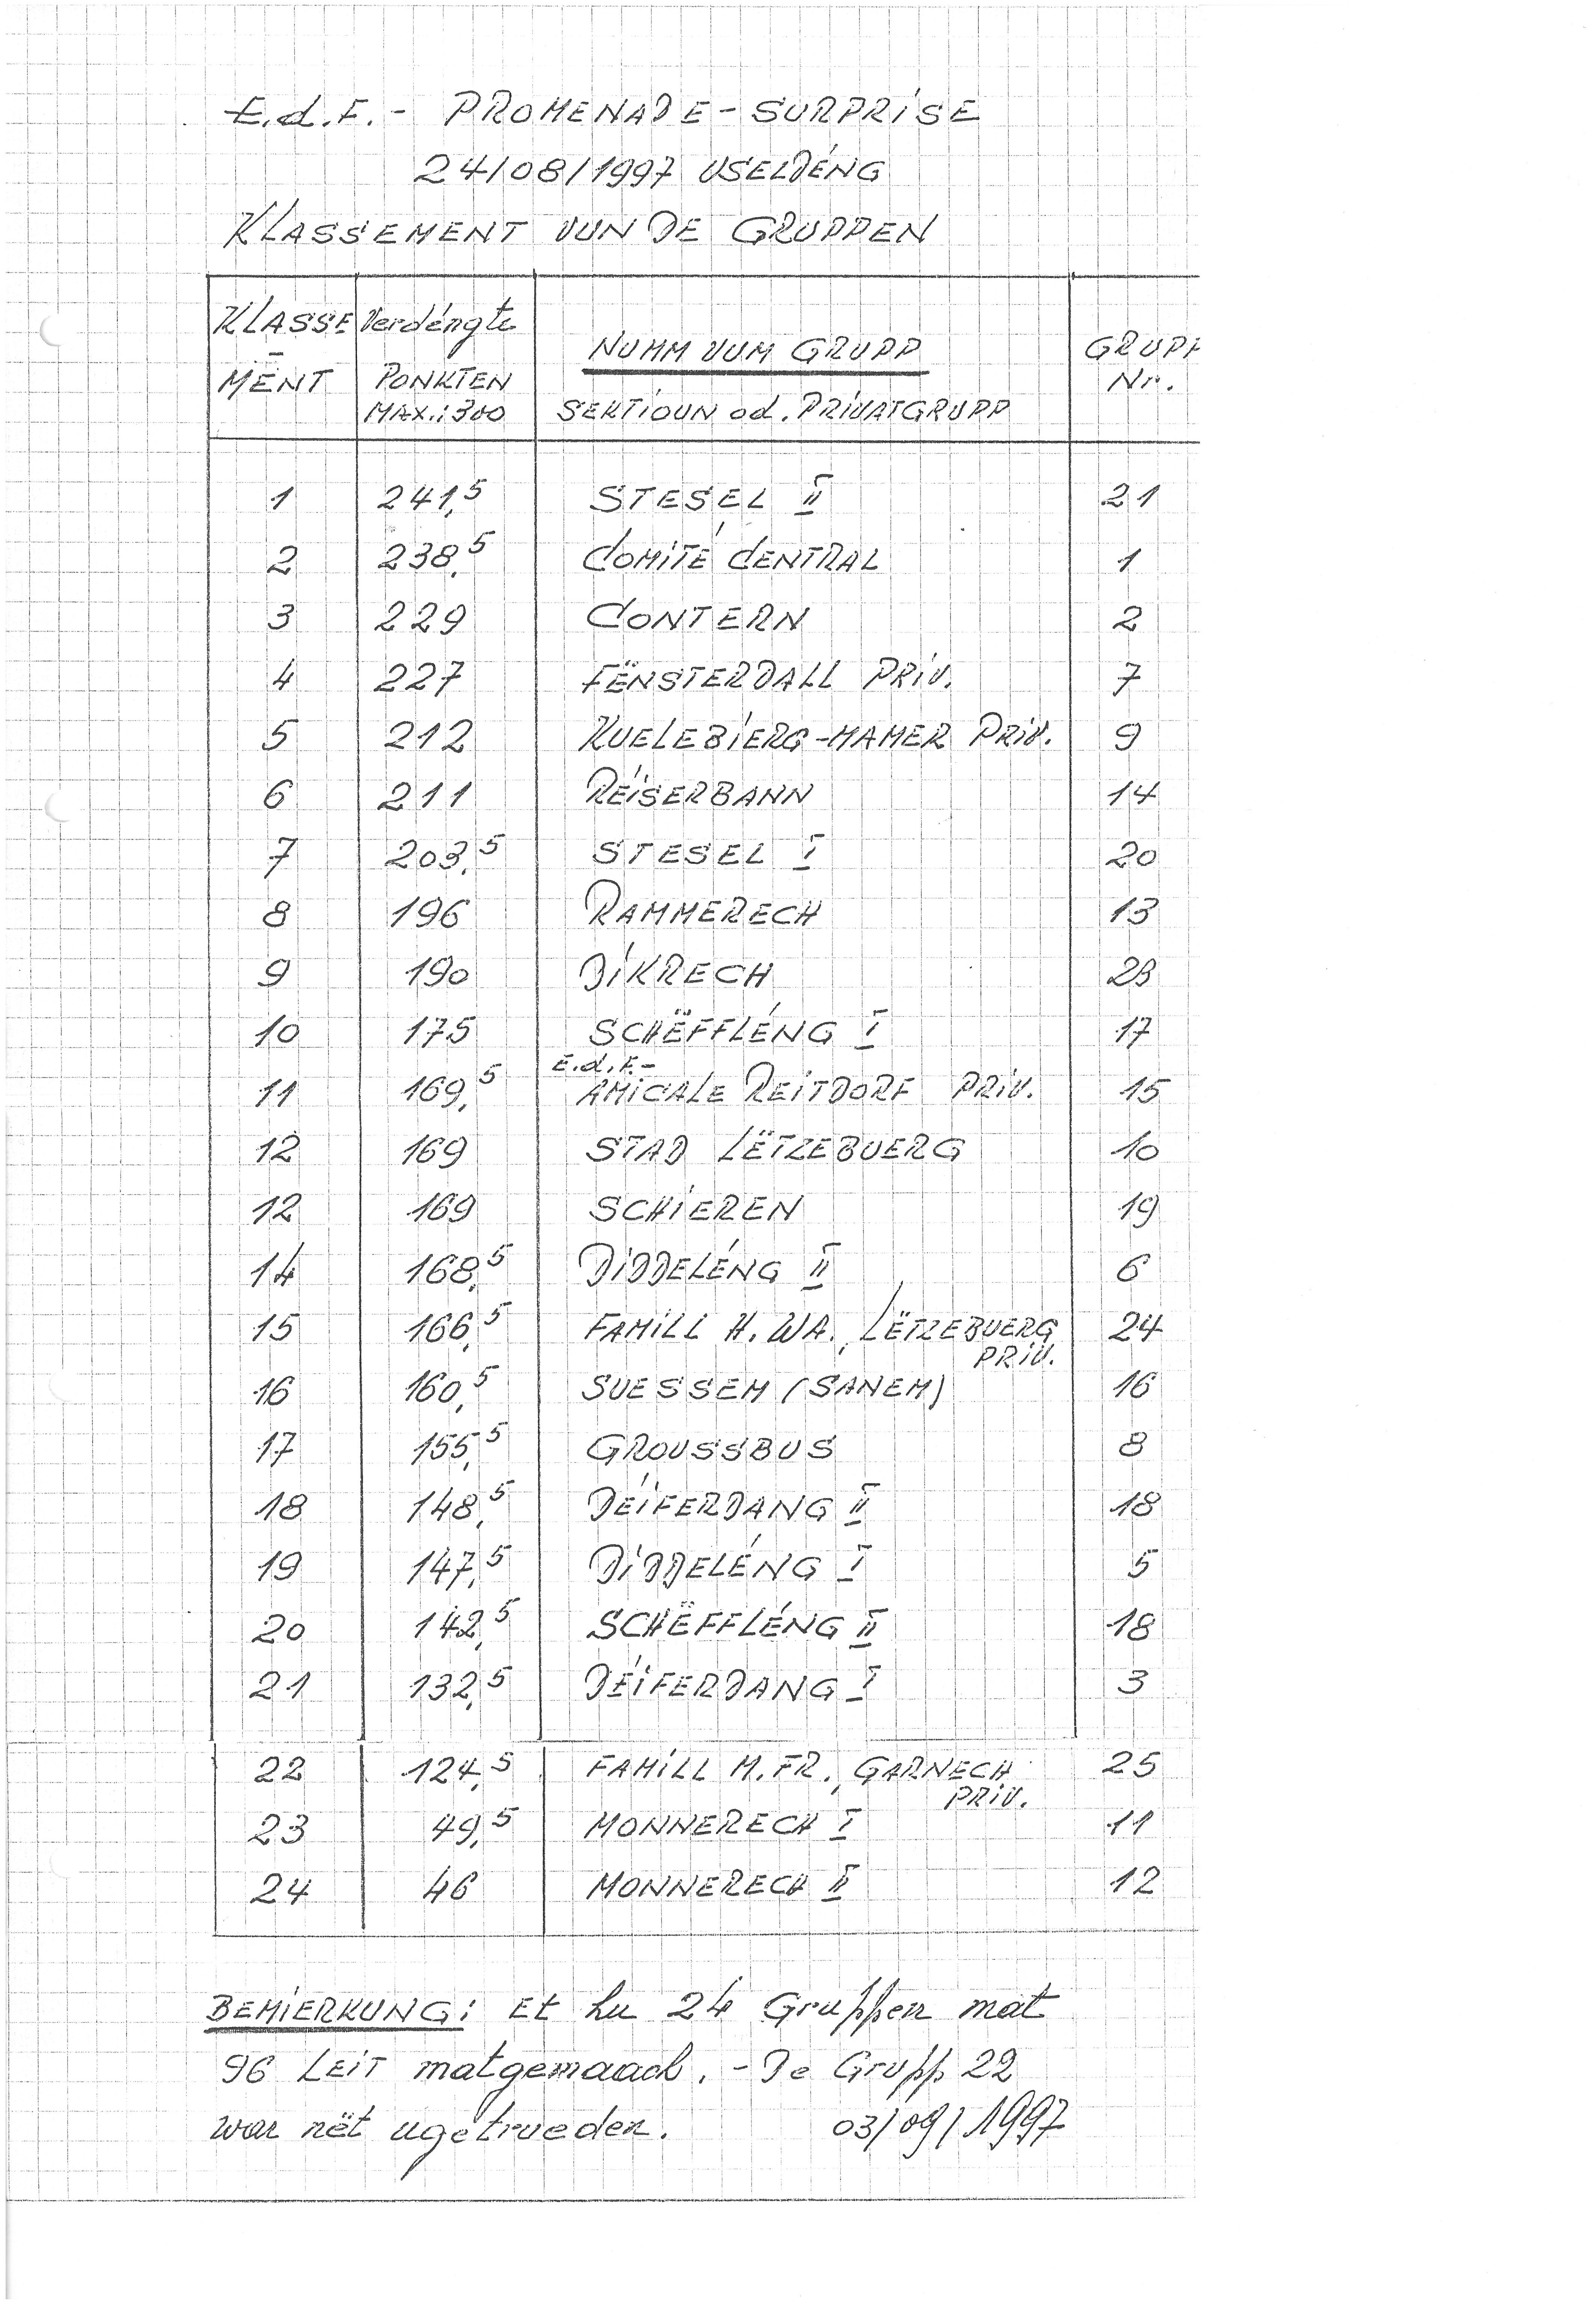 E.d.F.- PROMENADE-SURPRISE
24/08/1997 USELDÉNG
KLASSEMENT VUN DE GRUPPEN
KLASSE-MENT Verdéngte PONKTEN MAX.: 300 NUMM VUM GRUPP SEKTIOUN od. PRIVATGRUPP GRUPP Nr.
1 241,5 STESEL II 21
2 238,5 COMITÉ CENTRAL 1
3 229 CONTERN 2
4 227 FËNSTERDALL PRIV. 7
5 212 KUELEBIERG-MAMER PRIV. 9
6 211 RÉISERBANN 14
7 203,5 STESEL I 20
8 196 RAMMERECH 13
9 190 DIKRECH 23
10 175 SCHËFFLÉNG I 17
11 169,5 E.d.F.- AMICALE REITDORF PRIV. 15
12 169 STAD LËTZEBUERG 10
12 169 SCHIEREN 19
14 168,5 DIDDELÉNG II 6
15 166,5 FAMILL H. WA., LËTZEBUERG PRIV. 24
16 160,5 SUESSEM (SANEM) 16
17 155,5 GROUSSBUS 8
18 148,5 DÉIFERDANG II 18
19 147,5 DIDDELÉNG I 5
20 142,5 SCHËFFLÉNG II 18
21 132,5 DÉIFERDANG I 3
22 124,5 FAMILL M. FR., GARNECH PRIV. 25
23 49,5 MONNERECH I 11
24 46 MONNERECH II 12
BEMIERKUNG: Et hu 24 Gruppen mat
96 LEIT matgemaach. - De Grupp 22
war nët ugetrueden. 03/09/1997